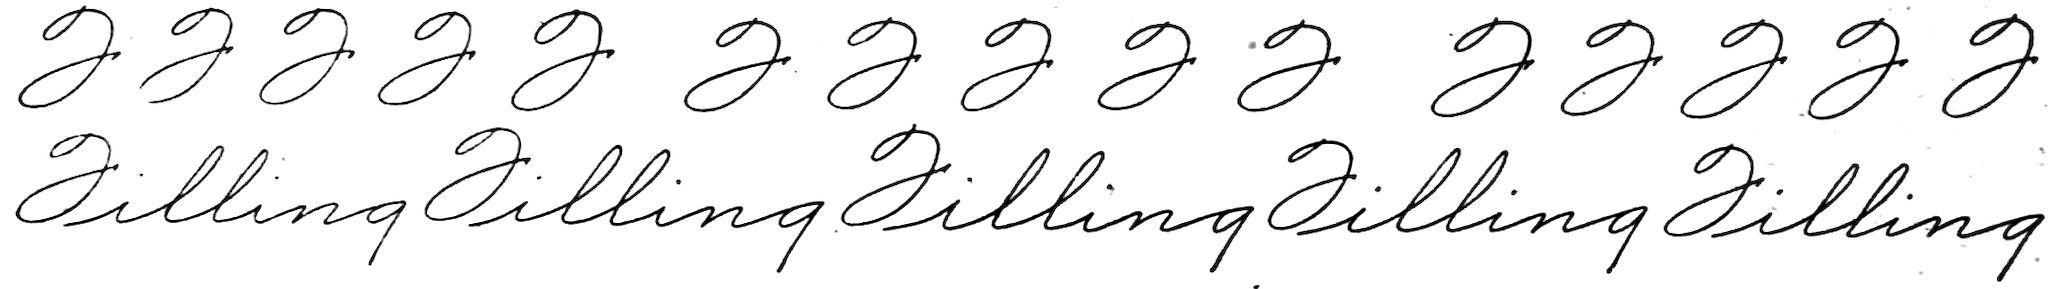 F F F F F F F F F F F F F F F
Filling Filling Filling Filling Filling